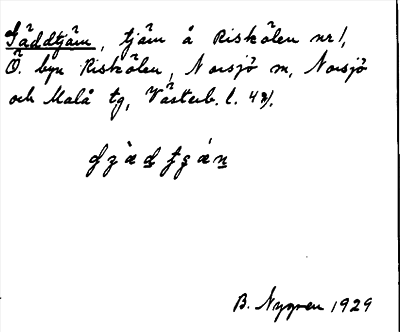 Gäddtjärn, tjärn å Riskölen nr 1,
Ö. byn Riskölen, Norsjö sn, Norsjö
och Malå tg, Västerb. l.
B. Nygren 1929